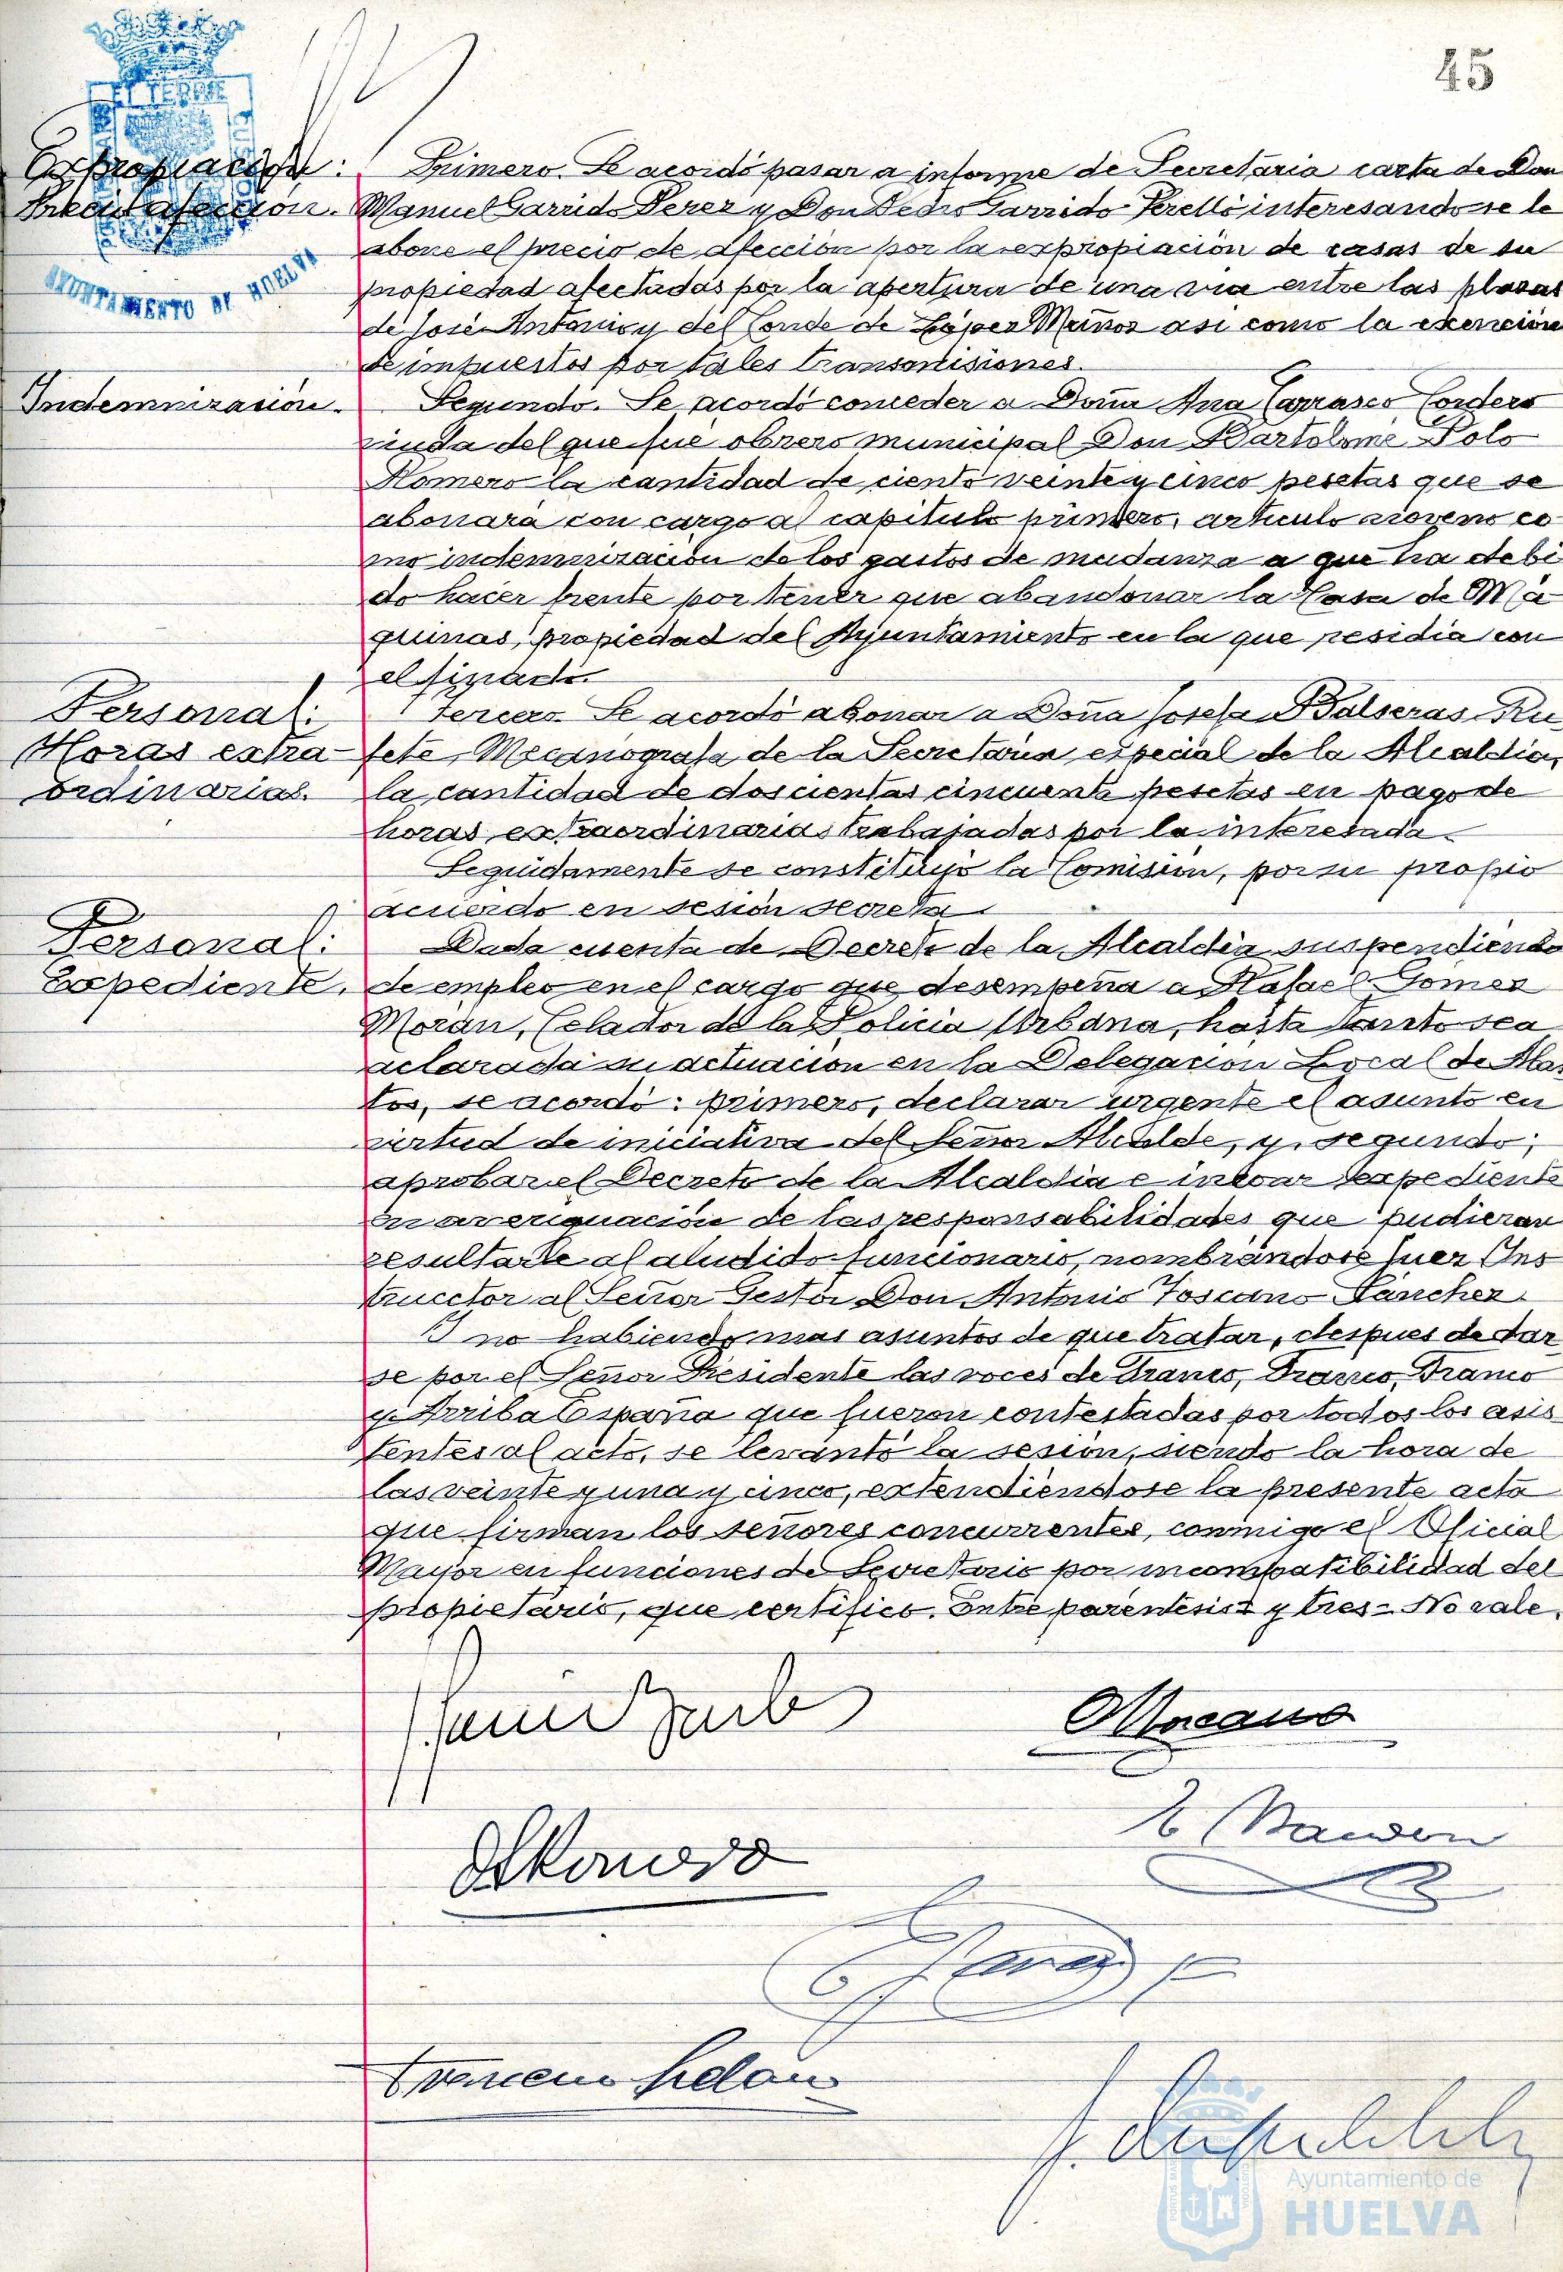 45
Expropiación:
Precio afección.
Primero. Se acordó pasar a informe de Secretaria carta de Don
Manuel Garrido Perez y Don Pedro Garrido Perelló interesandose le
abone el precio de afección por la expropiación de casas de su
propiedad afectadas por la apertura de una via entre las plazas
de José Antonio y del Conde de López Muñoz asi como la exención
de impuestos por tales transmisiones.
Indemnización.
Segundo. Se acordó conceder a Doña Ana Carrasco Cordero
viuda del que fué obrero municipal Don Bartolomé Polo
Romero la cantidad de ciento veinte y cinco pesetas que se
abonará con cargo al capitulo primero, articulo noveno co
mo indemnización de los gastos de mudanza a que ha debi
do hacer frente por tener que abandonar la Casa de Má-
quinas, propiedad del Ayuntamiento en la que residia con
el finado.
Personal:
Horas extra-
ordinarias.
Tercero. Se acordó abonar a Doña Josefa Balseras Ru
fete, Mecanografa de la Secretaria especial de la Alcaldia,
la cantidad de doscientas cincuenta pesetas en pago de
horas extraordinarias trabajadas por la interesada.
Seguidamente se constituyó la Comisión, por su propio
acuerdo en sesión secreta.
Personal:
Expediente.
Dada cuenta de Decreto de la Alcaldia suspendiendo
de empleo en el cargo que desempeña a Rafael Gomez
Moran, Celador de la Policia Urbana, hasta tanto sea
aclarada su actuacion en la Delegacion Local de Abas
tos, se acordó: primero, declarar urgente el asunto en
virtud de iniciativa del Señor Alcalde, y, segundo;
aprobar el Decreto de la Alcaldia e incoar expediente
en averiguación de las responsabilidades que pudieran
resultarle al aludido funcionario, nombrándose Juez Ins
tructor al Señor Gestor Don Antonio Toscano Sánchez.
Y no habiendo mas asuntos de que tratar, despues de dar
se por el Señor Presidente las voces de Franco, Franco, Franco
y Arriba España que fueron contestadas por todos los asis
tentes al acto, se levantó la sesión, siendo la hora de
las veinte y una y cinco, extendiéndose la presente acta
que firman los señores concurrentes, conmigo el Oficial
Mayor en funciones de Secretario por incompatibilidad del
propietario, que certifico. Entre parentesis: y tres = No vale.
AYUNTAMIENTO DE HUELVA
Ayuntamiento de
HUELVA